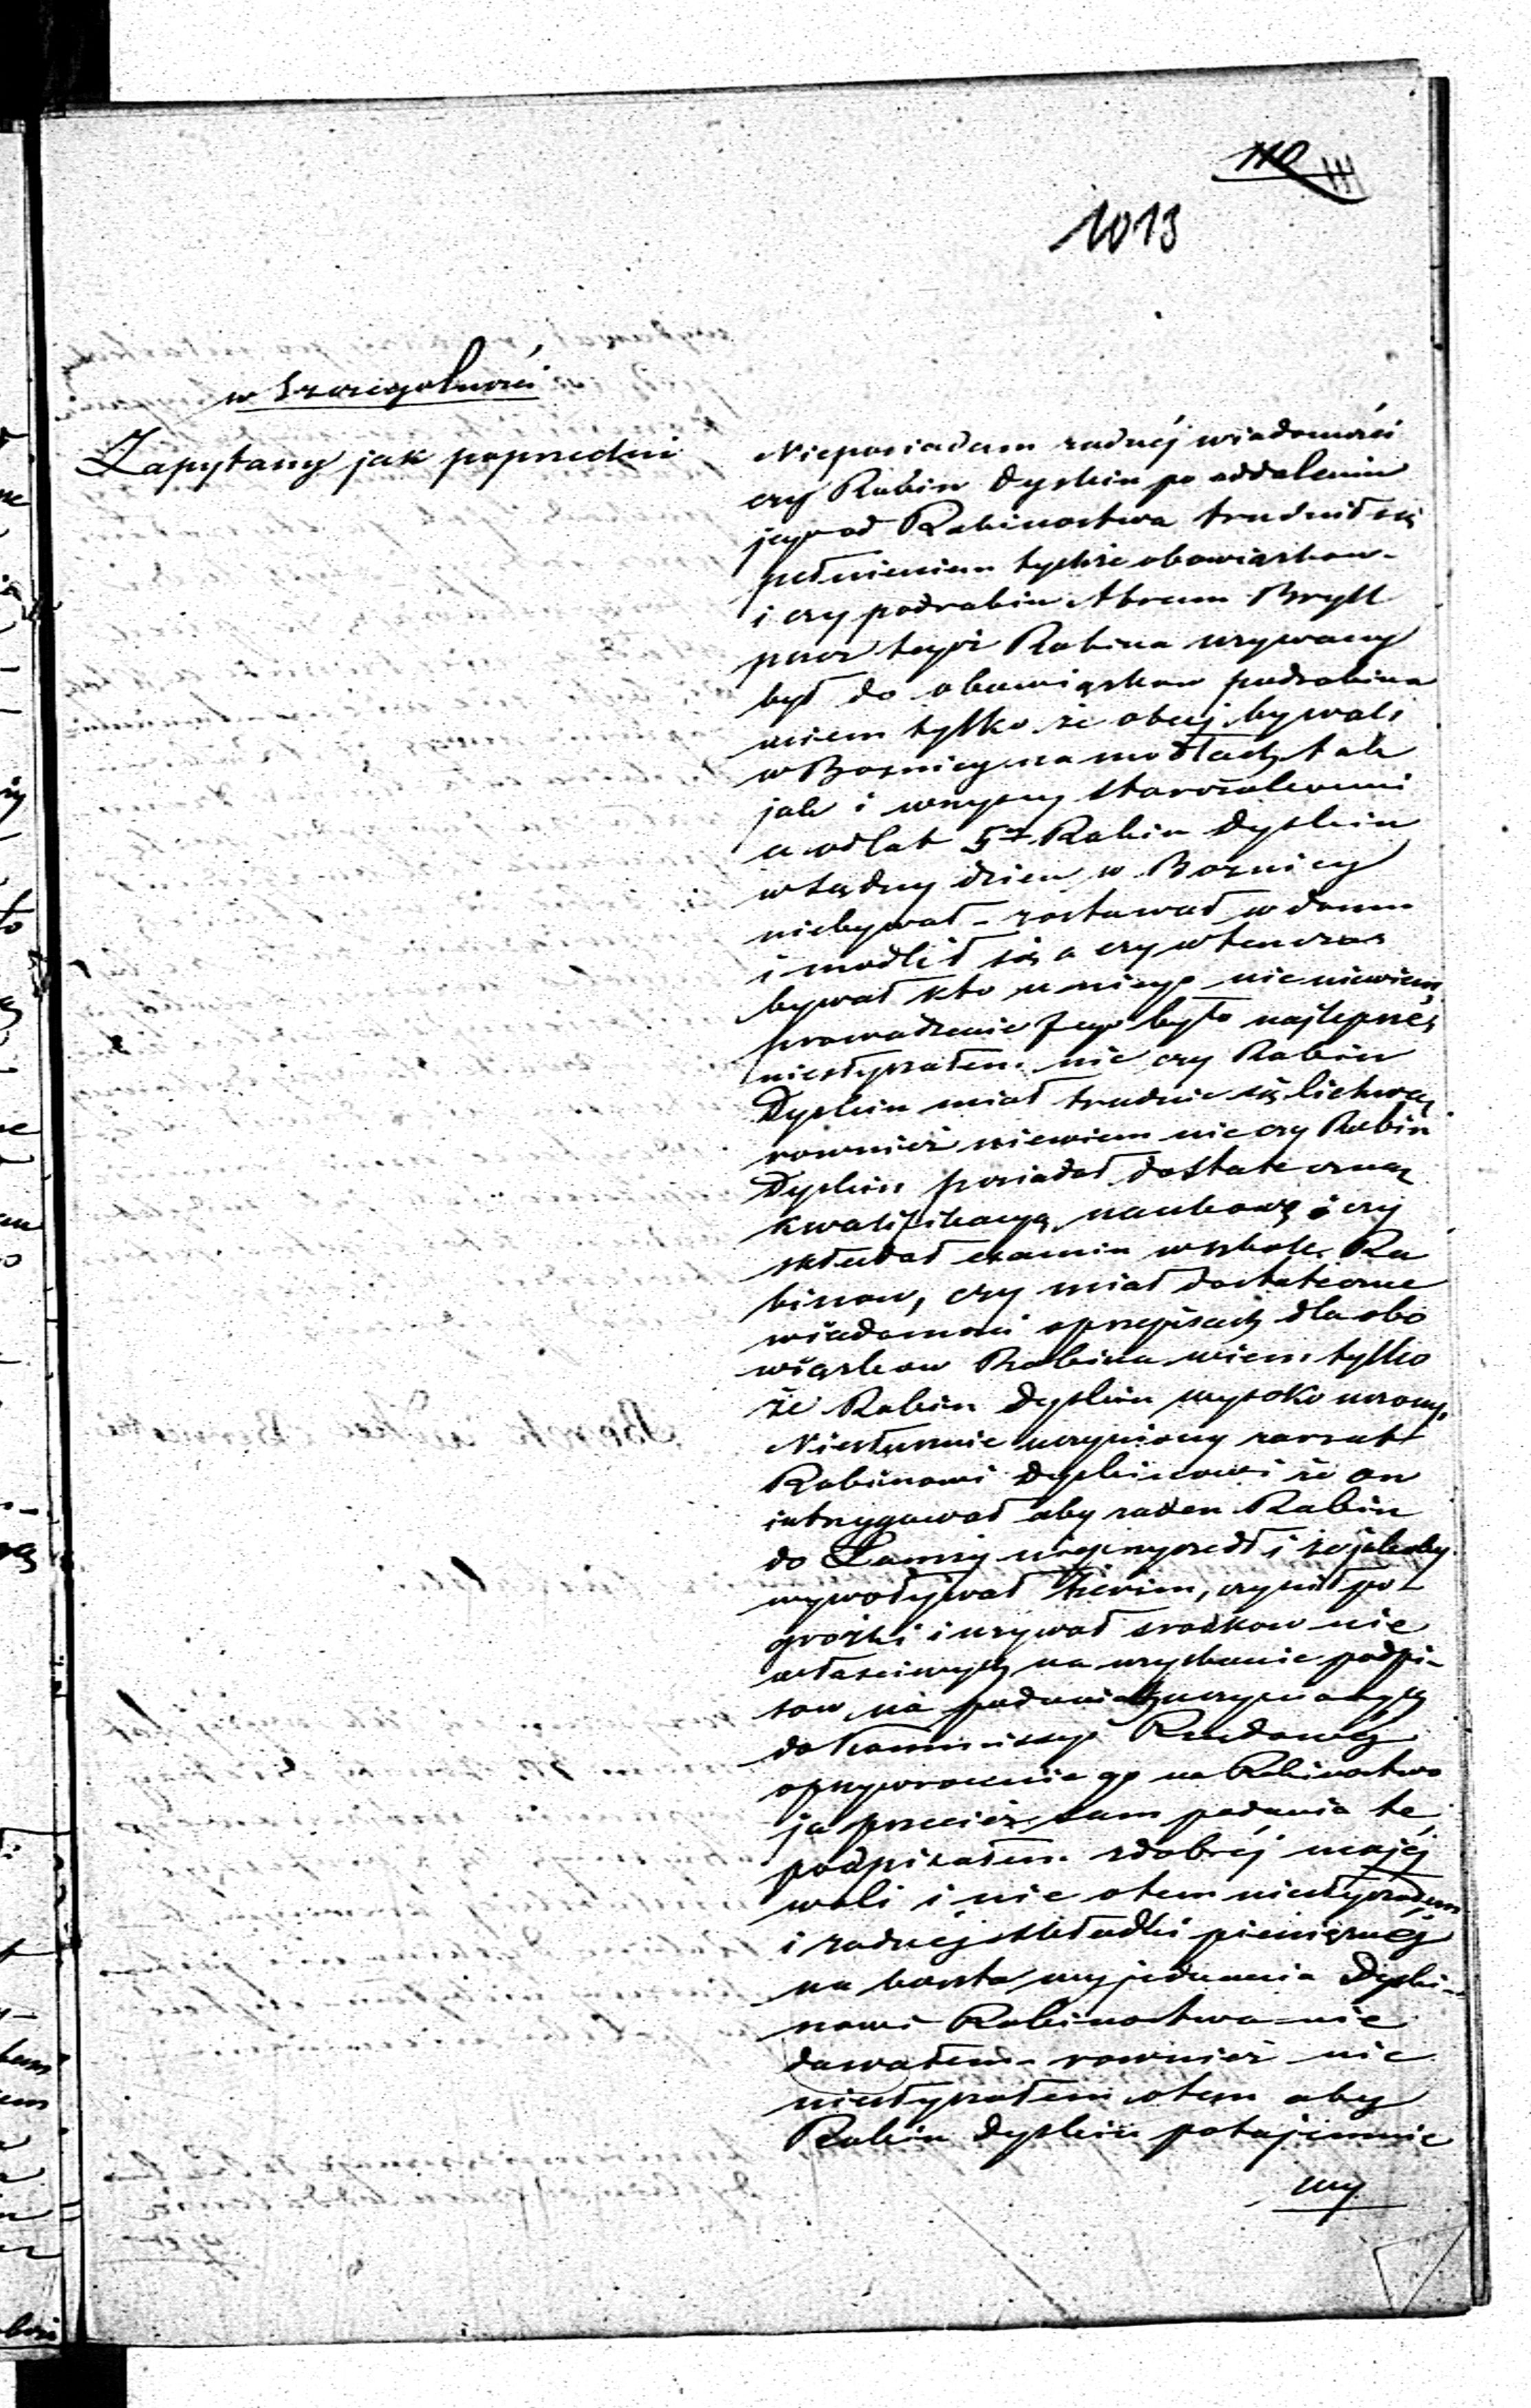 110 111
1013
w Szczegolności
Zapytany jak poprzedni
Nieposiadam żadnéj wiadomości
czy Rabin Dyskin po oddaleniu
jego od Rabinostwa trudnił się
pełnieniem tychże obowiązkow
i czy podrabin Abram Bryll
przez tegoż Rabina używany
był do obowiązkow podrabina
wiem tylko że obaj bywali
w Boznicy na modłach tak
jak i wszyscy starozakonni
a od lat 5 Rabin Dyskin
w sądny dzien w Boznicy
niebywał - zostawał w domu
i modlił się a czy wtenczas
bywał kto u niego nie niewiem,
prowadzenie jego było najlepsze,
niesłyszałem nic czy Rabin
Dyskin miał trudnic się lichwą,
rownież niewiem nic czy Rabin
Dyskin posiadał dostateczną
kwalifikacyą naukową i czy
składał examin w szkole Ra
binow, czy miał dostateczne
wiadomosci o przepisach dla obo
wiązkow Rabina wiem tylko
że Rabin Dyskin wysoko uczony,
Niesłusznie uczyniony zarzut
Rabinowi Dyskinowi że on
intrygował aby żaden Rabin
do Łomży nieprzyszedł i że jakoby
wywoływał Herim, czynił po
grożki i używał srodkow nie
własciwych na uzyskanie podpi-
sow na podaniach uczynionych
do Kommissyi Rządowej
o przywrocenie go na Rabinostwo
ja przecież sam podania te
podpisałem z dobréj mojéj
woli i nic otem niesłyszałem
i żadnej składki pieniężnej
na koszta wyjednania Dyski-
nowi Rabinostwa nie
dawałem - rownież nic
niesłyszałem otem aby
Rabin Dyskin potajemnie